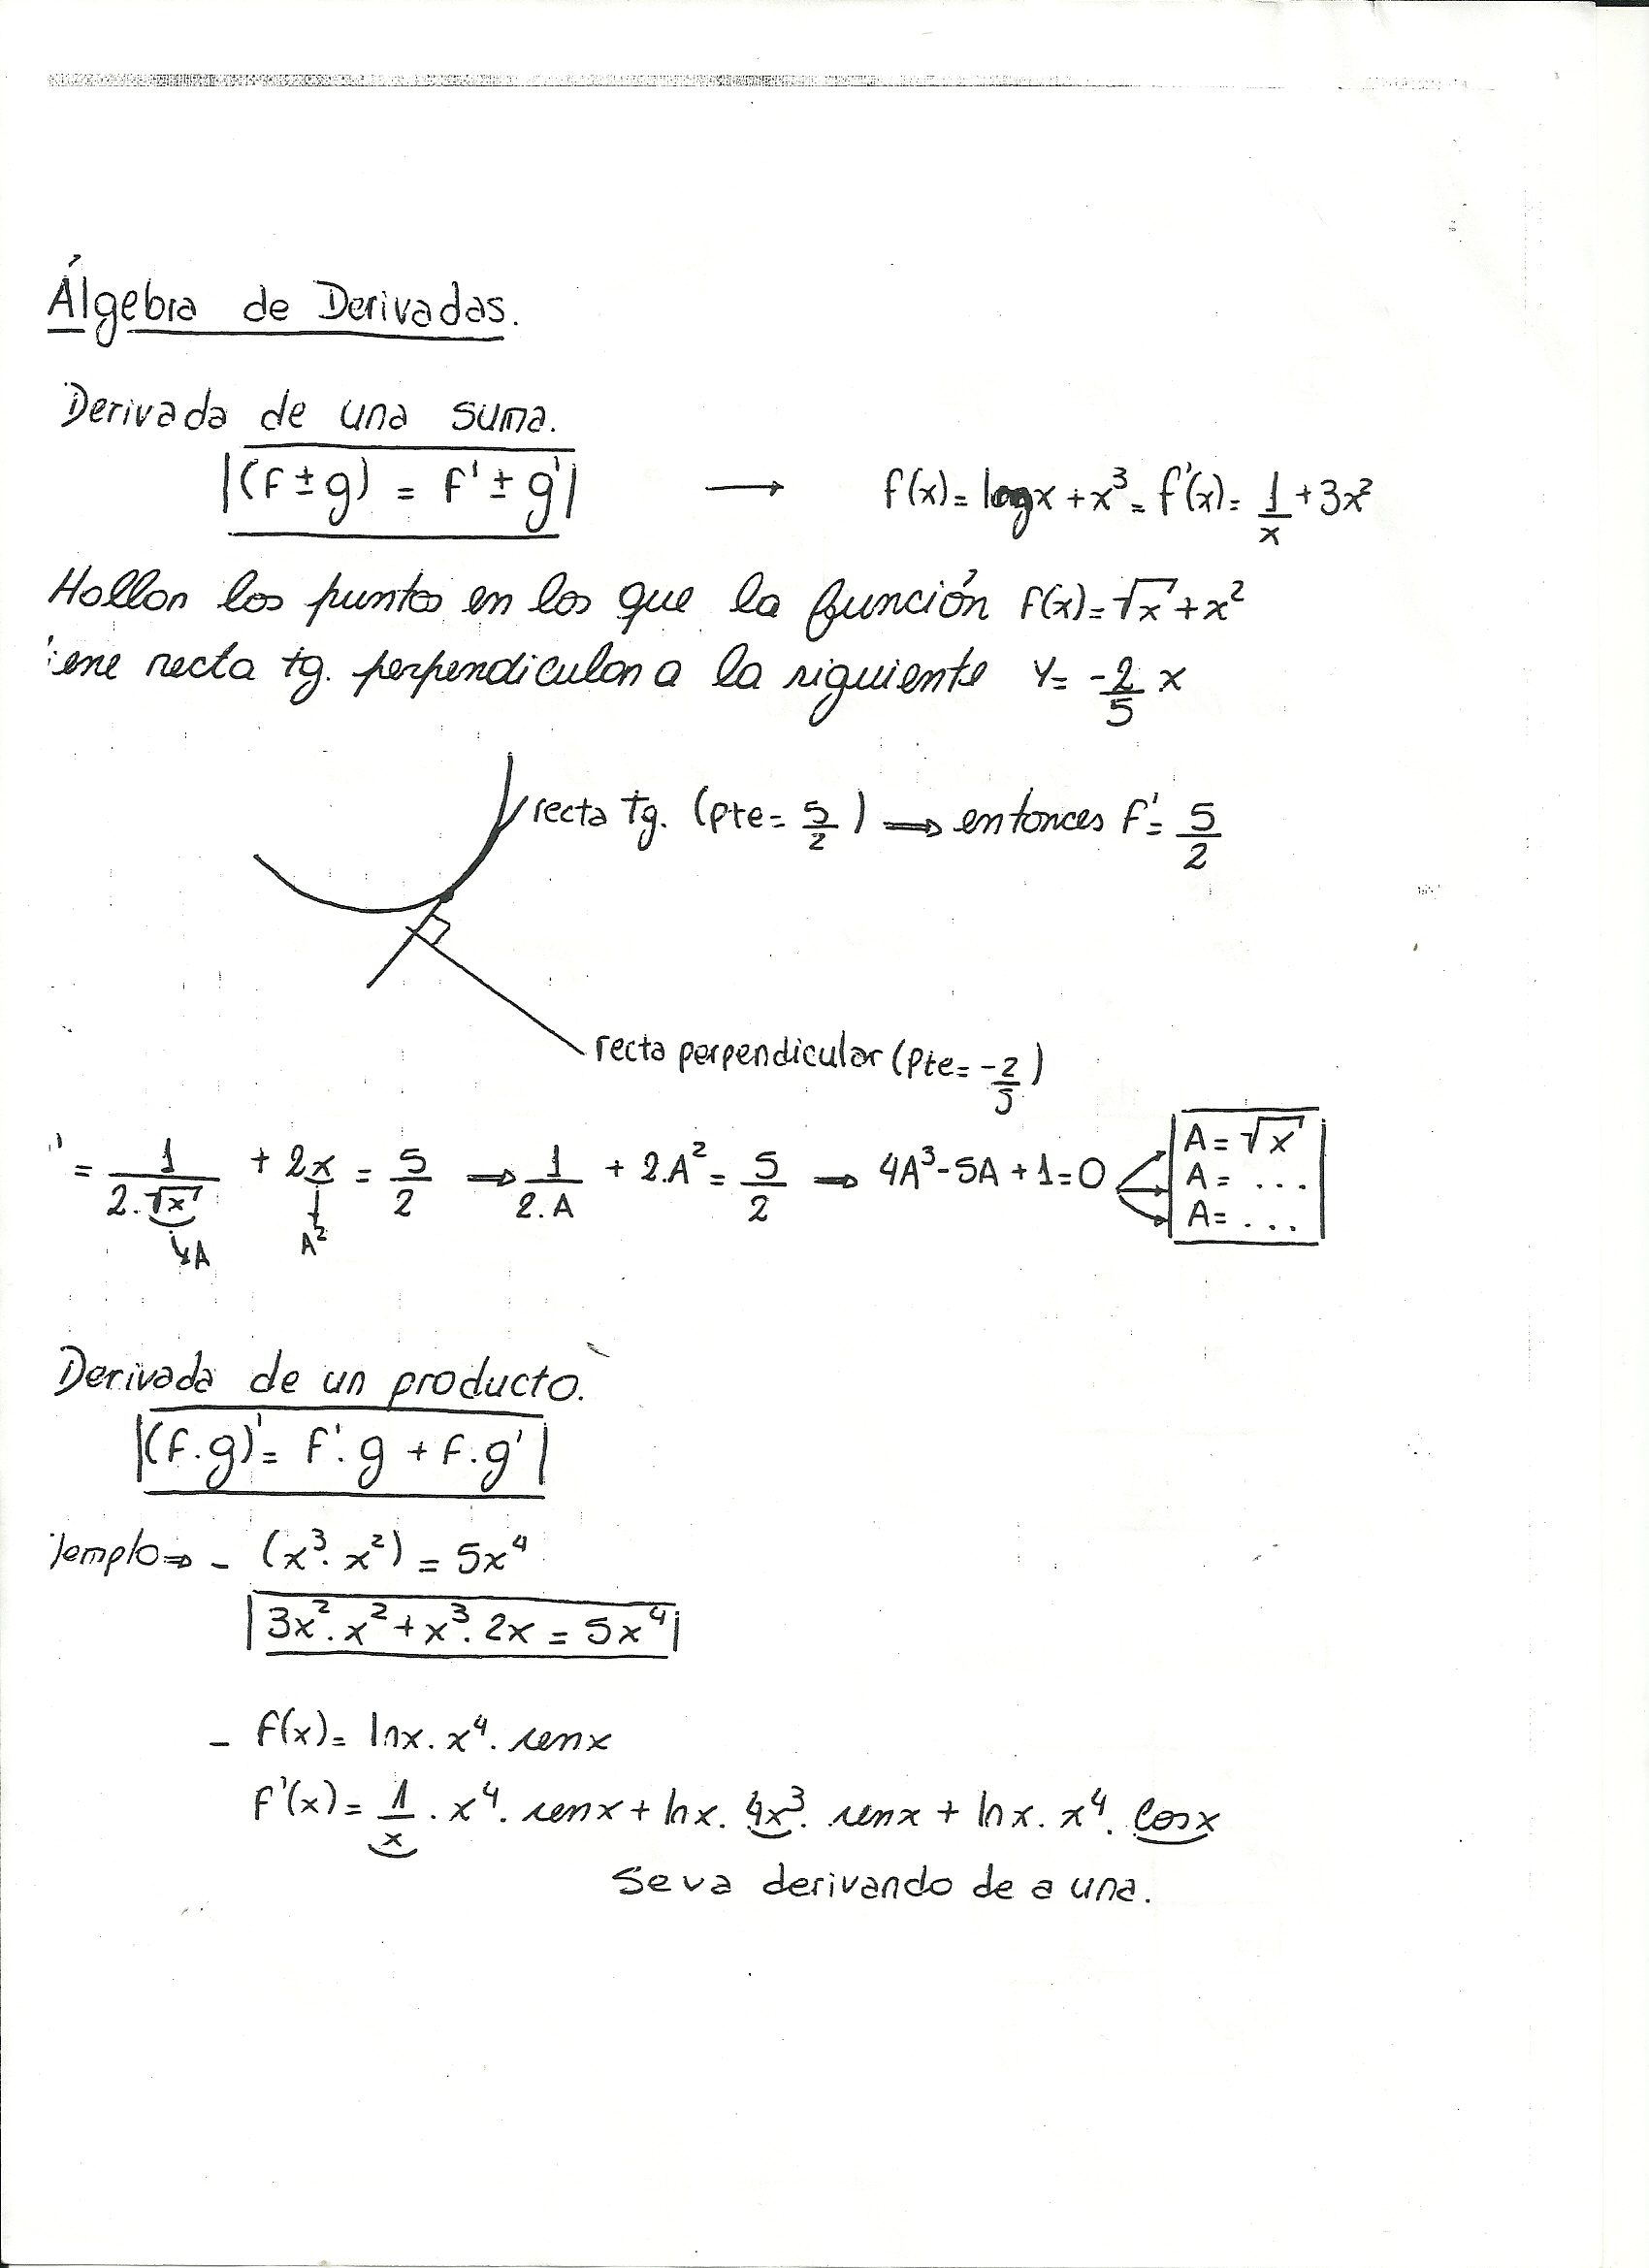 Álgebra de Derivadas.
Derivada de una suma.
(f ± g) = f' ± g' → f(x) = logx + x³ = f'(x) = 1/x + 3x²
Hallar los puntos en los que la función f(x) = √x + x²
iene recta tg. perpendicular a la siguiente y = -2/5 x
recta tg. (pte = 5/2) ⇒ entonces f' = 5/2
recta perpendicular (pte = -2/5)
' = 1/2.√x + 2x = 5/2 ⇒ 1/2.A + 2.A² = 5/2 ⇒ 4A³ - 5A + 1 = 0
A = √x
A = ...
A = ...
A
A²
Derivada de un producto.
(f.g)' = f'.g + f.g'
jemplo ⇒ - (x³.x²) = 5x⁴
3x².x² + x³.2x = 5x⁴
- f(x) = lnx. x⁴. senx
f'(x) = 1/x . x⁴. senx + lnx. 4x³. senx + lnx. x⁴. cosx
Se va derivando de a una.